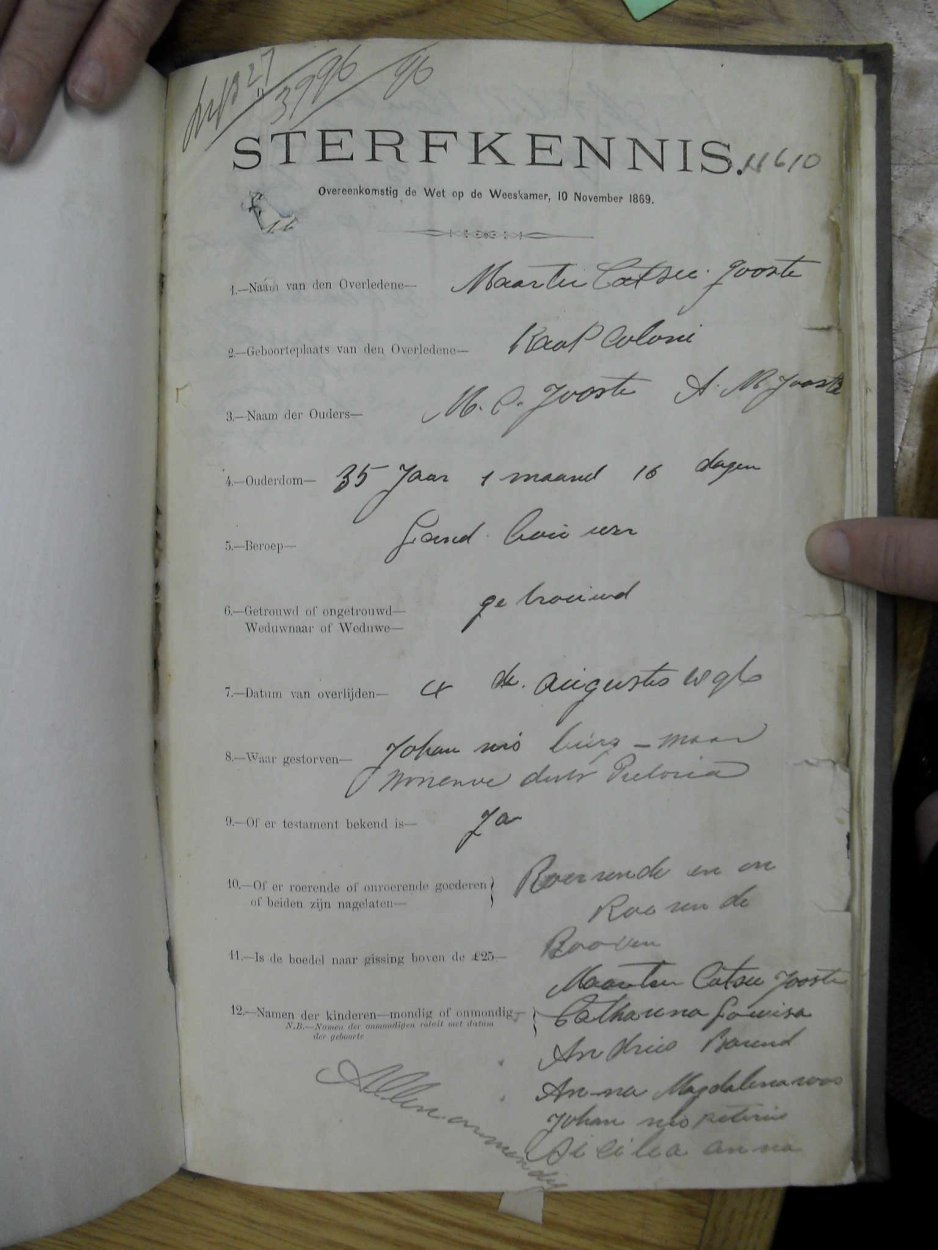 3796/96
STERFKENNIS. 11610
Overeenkomstig de Wet op de Weeskamer, 10 November 1869.
1.—Naam van den Overledene— Maarten Catsee Jooste
2.—Geboorteplaats van den Overledene— Kaap Coloni
3.—Naam der Ouders— M. C. Jooste A. M Jooste
4.—Ouderdom— 35 Jaar 1 maand 16 dagen
5.—Beroep— Land bouwer
6.—Getrouwd of ongetrouwd— getrouwd
Weduwnaar of Weduwe—
7.—Datum van overlijden— 4 de. augustis 1896
8.—Waar gestorven— Johan nis burg
Pretoria
9.—Of er testament bekend is— Ja
10.—Of er roerende of onroerende goederen Roerende en on
of beiden zijn nagelaten— Roerende
11.—Is de boedel naar gissing boven de £25— Booven
Maarten Catsee Jooste
12.—Namen der kinderen—mondig of onmondig— Catharina Lowisa
N.B.—Namen der onmondigen voluit met datum
der geboorte
Andries Barend
An-na Magdalena
Johan nis Peteris
Sicilea anna
Allen onmondig